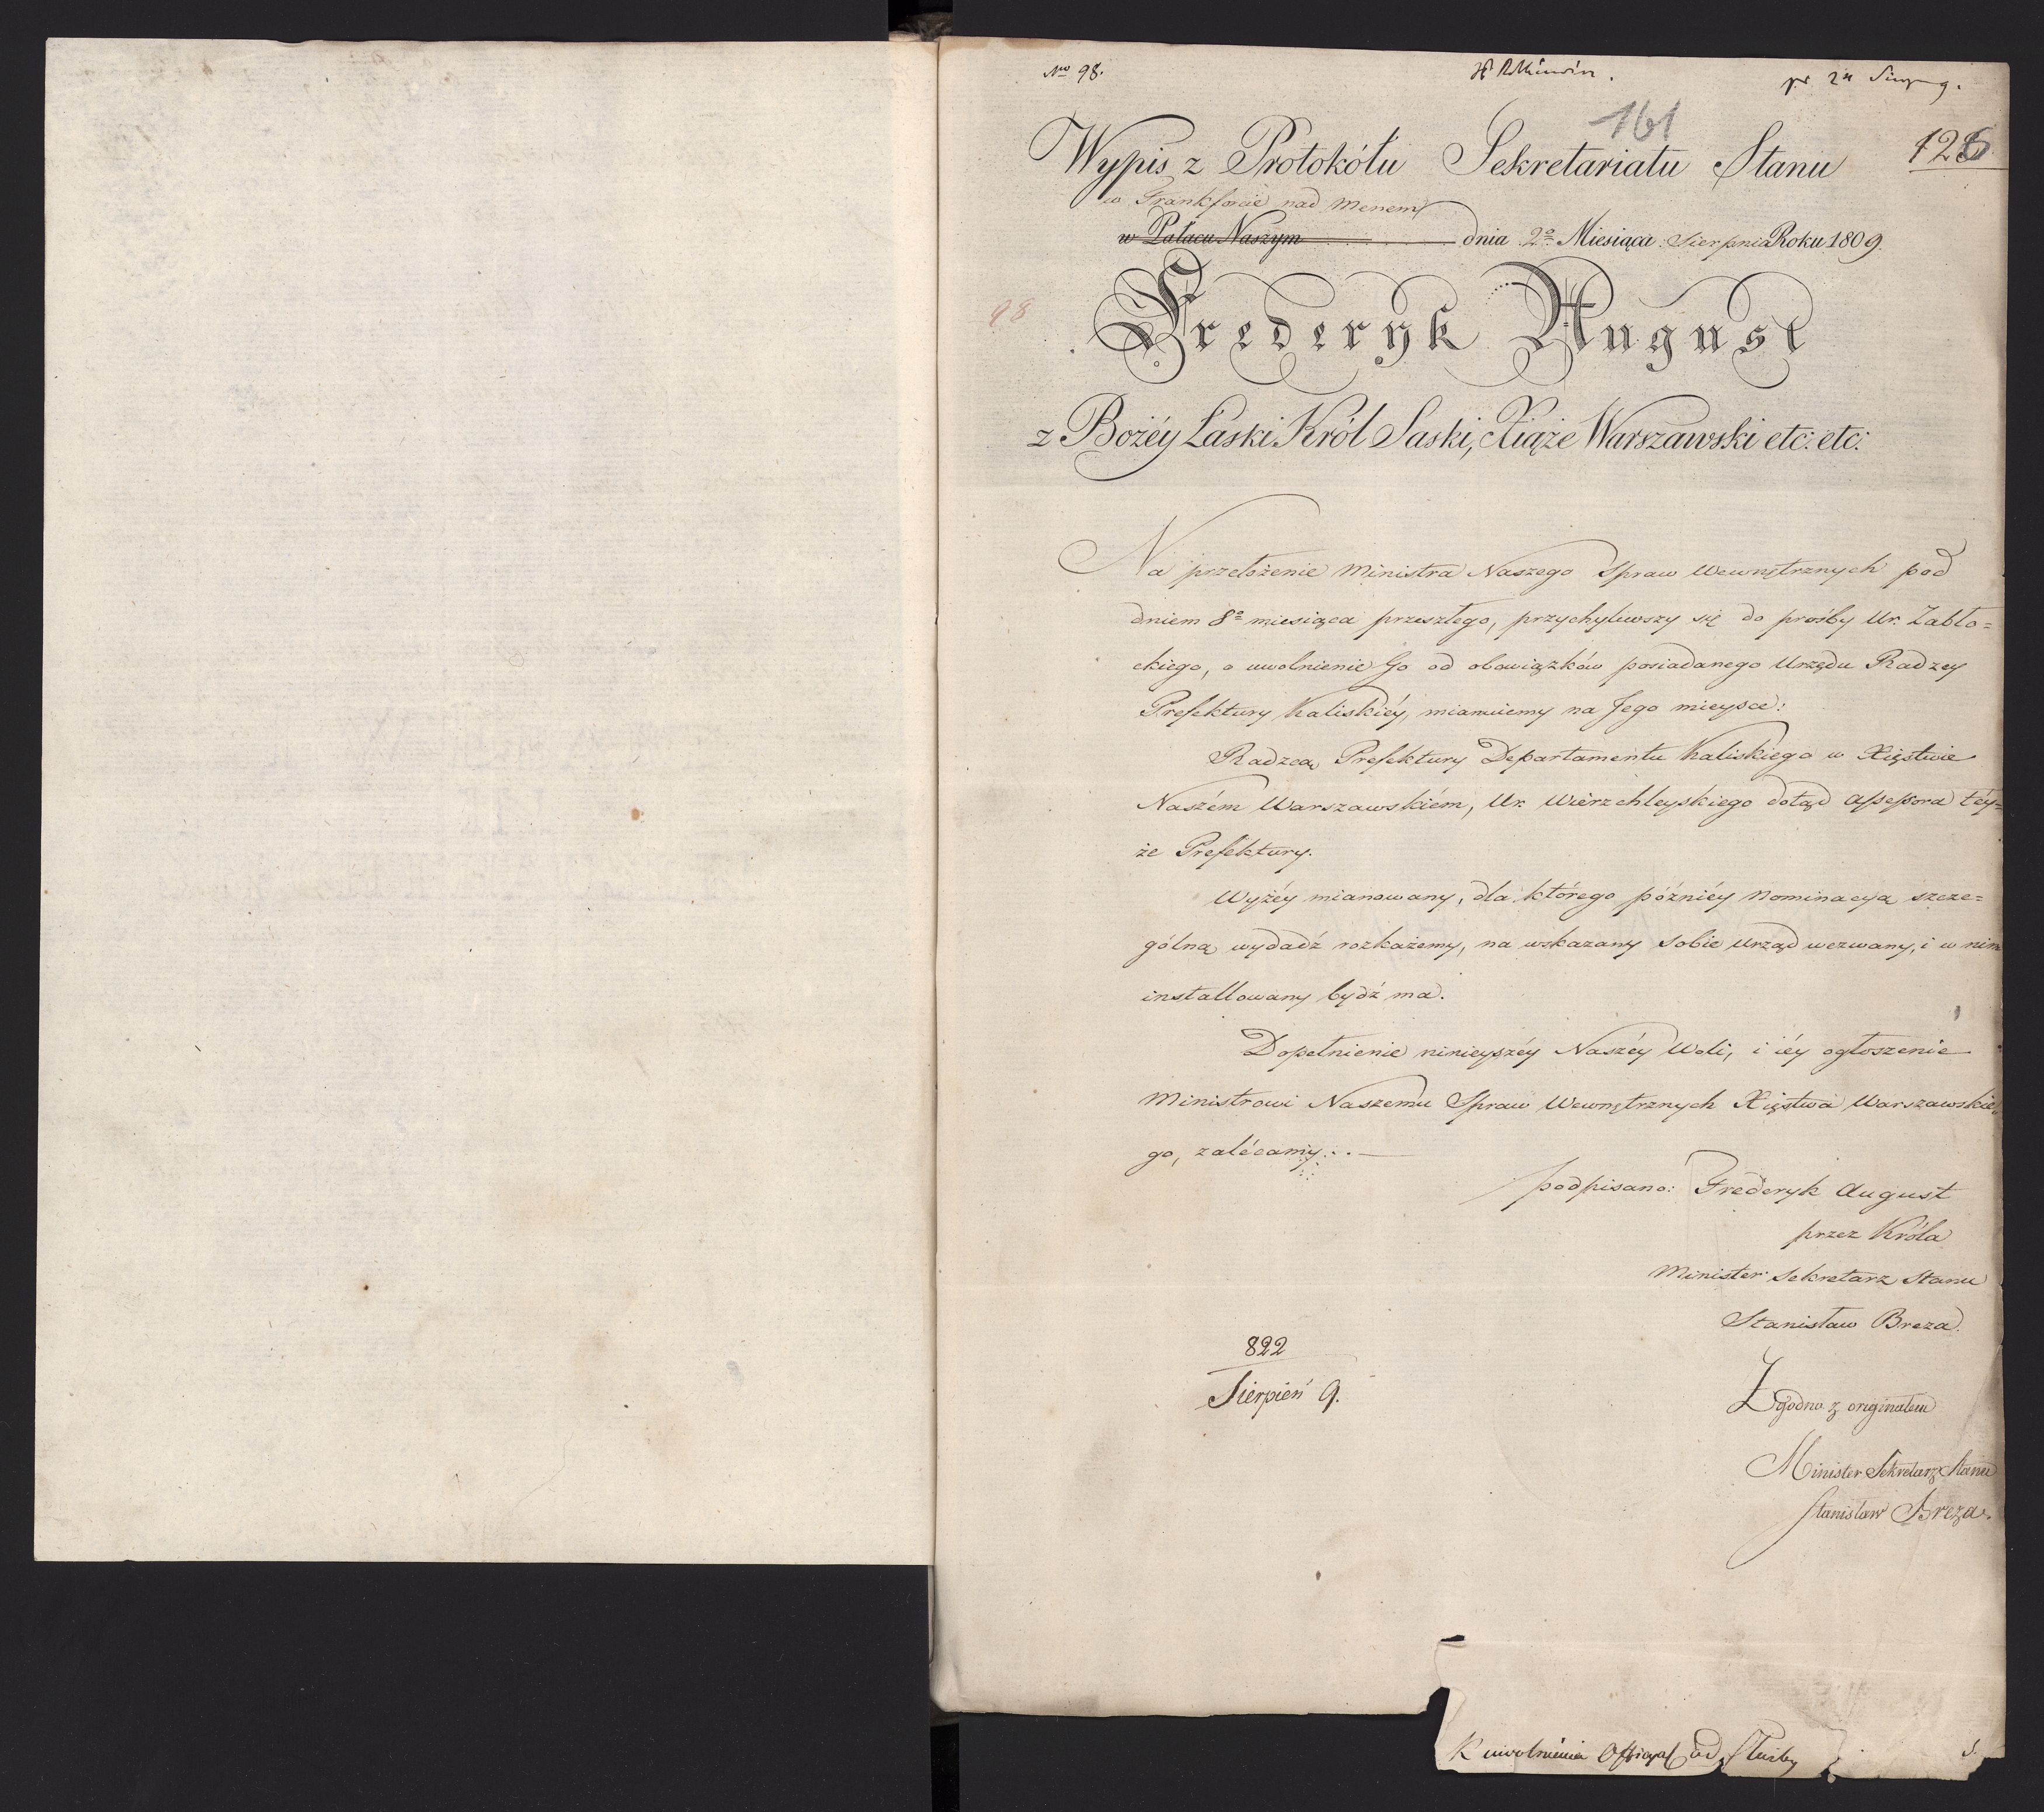 No 98.
161
126
Wypis z Protokółu Sekretariatu Stanu
w Frankforcie nad Menem
w Pałacu Naszym dnia 2o Miesiąca Sierpnia Roku 1809.
98
Frederyk August
z Bożéy Łaski Król Saski, Xiąże Warszawski etc: etc:
Na przełożenie Ministra Naszego Spraw Wewnętrznych pod
dniem 8o miesiąca przeszłego, przychyliwszy się do prośby Ur. Zabło=
ckiego, o uwolnienie Go od obowiązków posiadanego Urzędu Radzcy
Prefektury Kaliskiéy, mianujemy na Jego mieysce:
Radzcą Prefektury Departamentu Kaliskiego w Xięstwie
Naszém Warszawskiém, Ur. Wierzchleyskiego dotąd Assessora téy=
że Prefektury.
Wyżéy mianowany, dla którego późniéy Nominacyą szcze=
gólną wydadź rozkażemy, na wskazany sobie Urząd wezwany, i w nim
installowany bydź ma.
Dopełnienie ninieyszéy Naszéy Woli, i iéy ogłoszenie
Ministrowi Naszemu Spraw Wewnętrznych Xięstwa Warszawskie=
go, zalécamy. . . —
podpisano: Frederyk August
przez Króla
Minister Sekretarz Stanu
Stanisław Breza.
822
Sierpień 9.
Zgodno z originałem
Minister Sekretarz Stanu
Stanisław Breza.
K uwolnienia od Służby